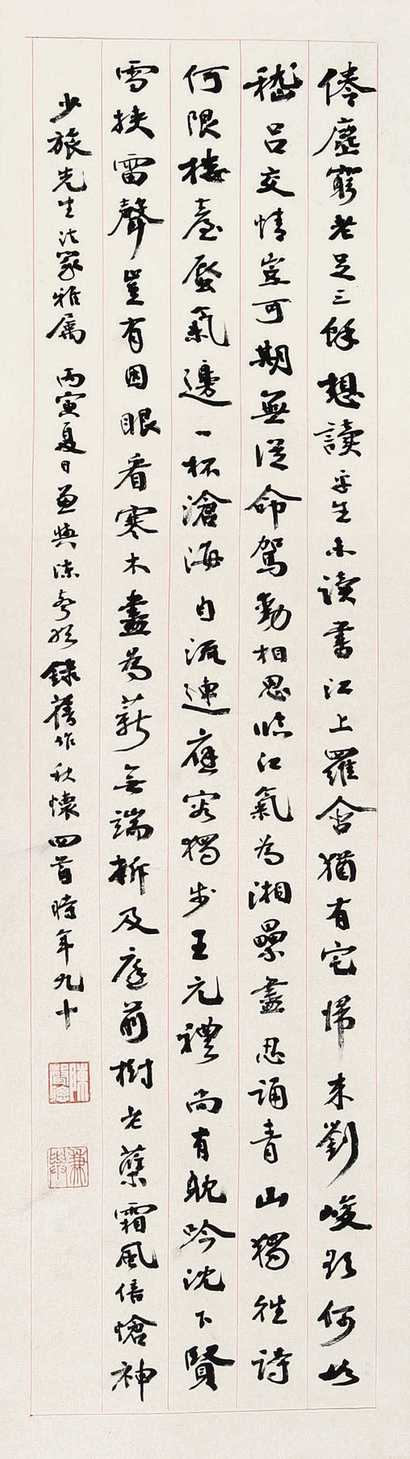 俸虛窮老足三餘想讀平生未讀書江上羅含猶有宅歸來劉峻何如
嵇呂交情豈可期無從命駕動相思臨江氣為湘纍盡忍誦青山獨往詩
何限樓臺蜃氣邊一杯滄海自流連應容獨步王元禮尚有耽吟沈下賢
雪挾雷聲豈有因眼看寒木盡為薪無端斫及庭前樹老蘗霜風倍愴神
少旅先生法家雅屬 丙寅夏日兼與陳聲聰錄舊作秋懷四首時年九十